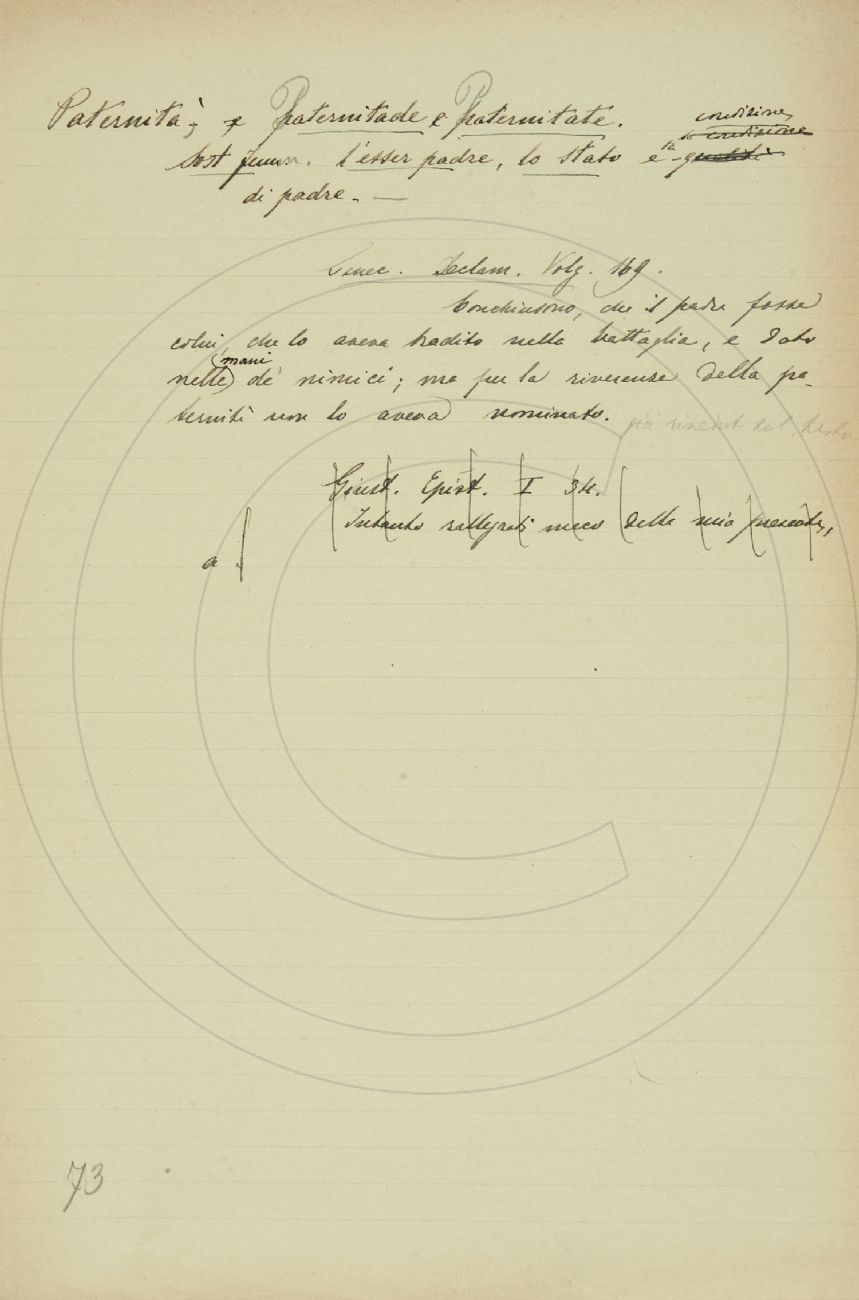 Paternità, e Paternitade e Paternitate.
condizione
la condizione
Sost. femm. l'esser padre, lo stato e la qualità
di padre. —
Senec. Declam. Volg. 169.
Conchiusono, che il padre fosse
colui, che lo aveva tradito nella battaglia, e dato
mani
nelle de' nimici; ma per la riverenza della pa-
ternità non lo aveva nominato. già
Giust. Epist. I 34.
Intanto rallegrati meco della mia
a
73